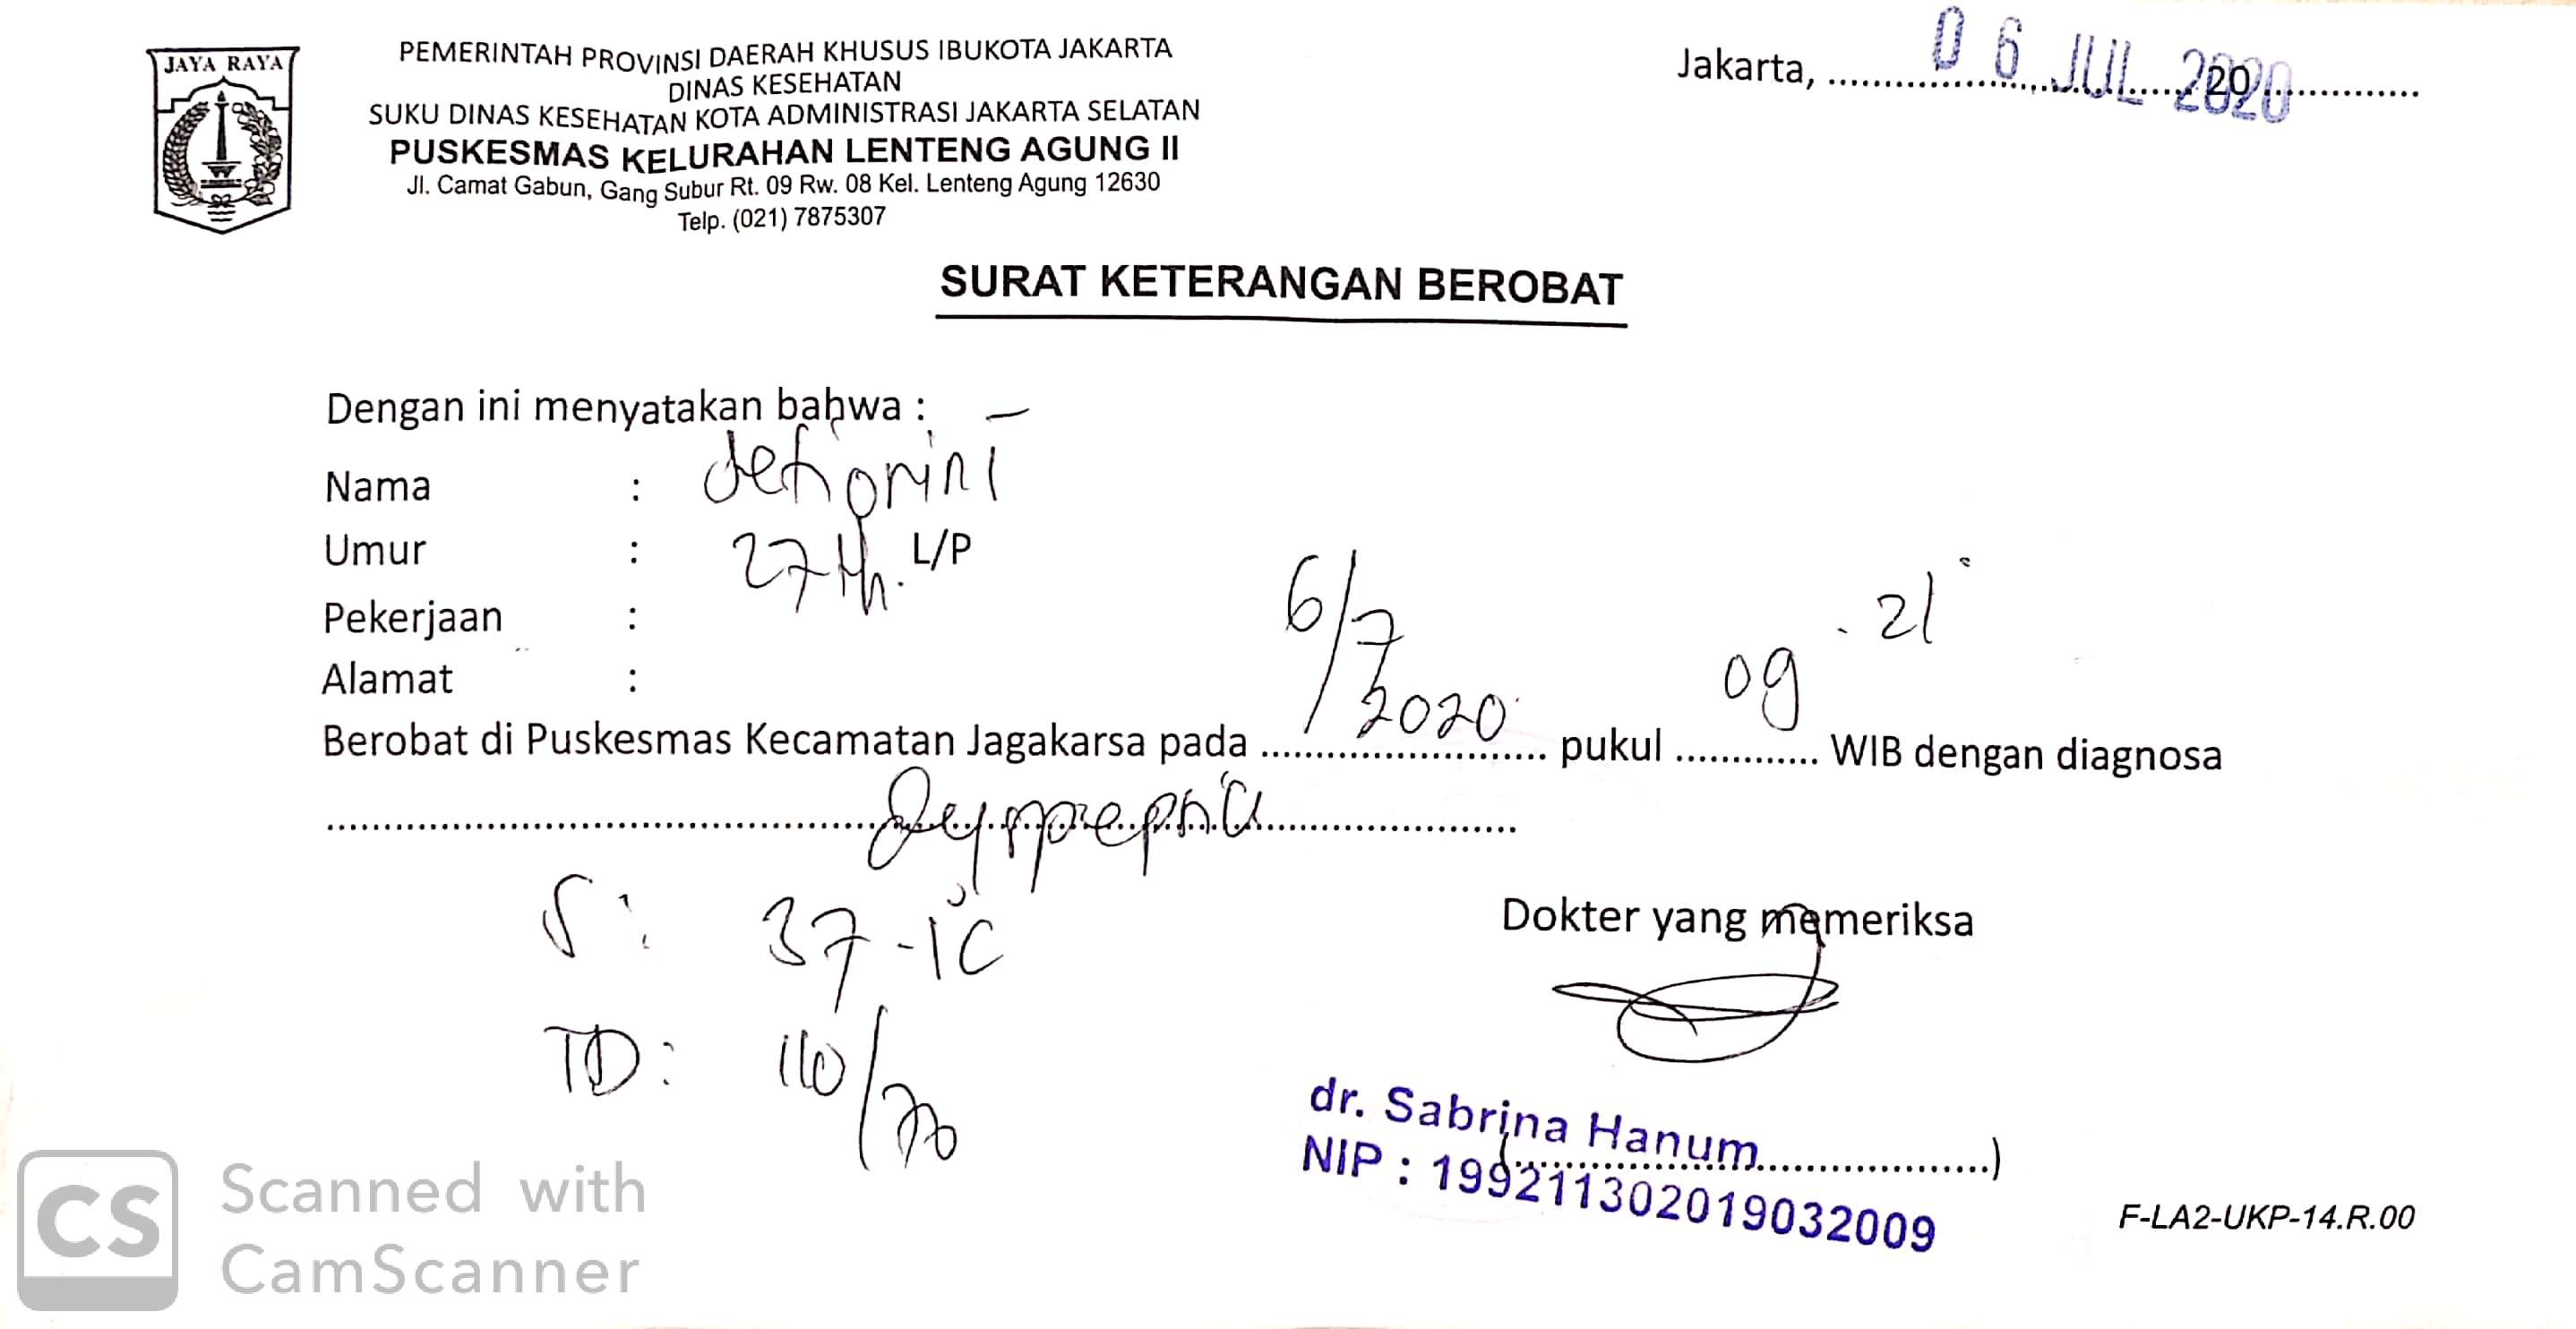 JAYA RAYA
PEMERINTAH PROVINSI DAERAH KHUSUS IBUKOTA JAKARTA
DINAS KESEHATAN
SUKU DINAS KESEHATAN KOTA ADMINISTRASI JAKARTA SELATAN
PUSKESMAS KELURAHAN LENTENG AGUNG II
Jl. Camat Gabun, Gang Subur Rt. 09 Rw. 08 Kel. Lenteng Agung 12630
Telp. (021) 7875307
Jakarta, 06 JUL 2020
SURAT KETERANGAN BEROBAT
Dengan ini menyatakan bahwa :
Nama :
Umur : 27 th. L/P
Pekerjaan :
Alamat :
Berobat di Puskesmas Kecamatan Jagakarsa pada 6/7 2020 pukul 09.21 WIB dengan diagnosa
S : 37.1°C
TD : 110/70
Dokter yang memeriksa
dr. Sabrina Hanum
NIP : 199211302019032009
F-LA2-UKP-14.R.00
CS Scanned with
CamScanner